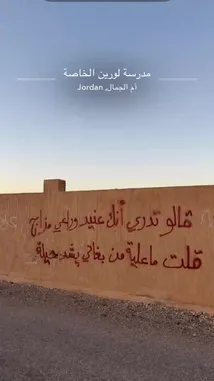 مدرسة لورين الخاصة
أم الجمال, Jordan
قالو تدري أنك عنيد وراعي مزاج
قلت ماعلية من بغاني يشد حيلة